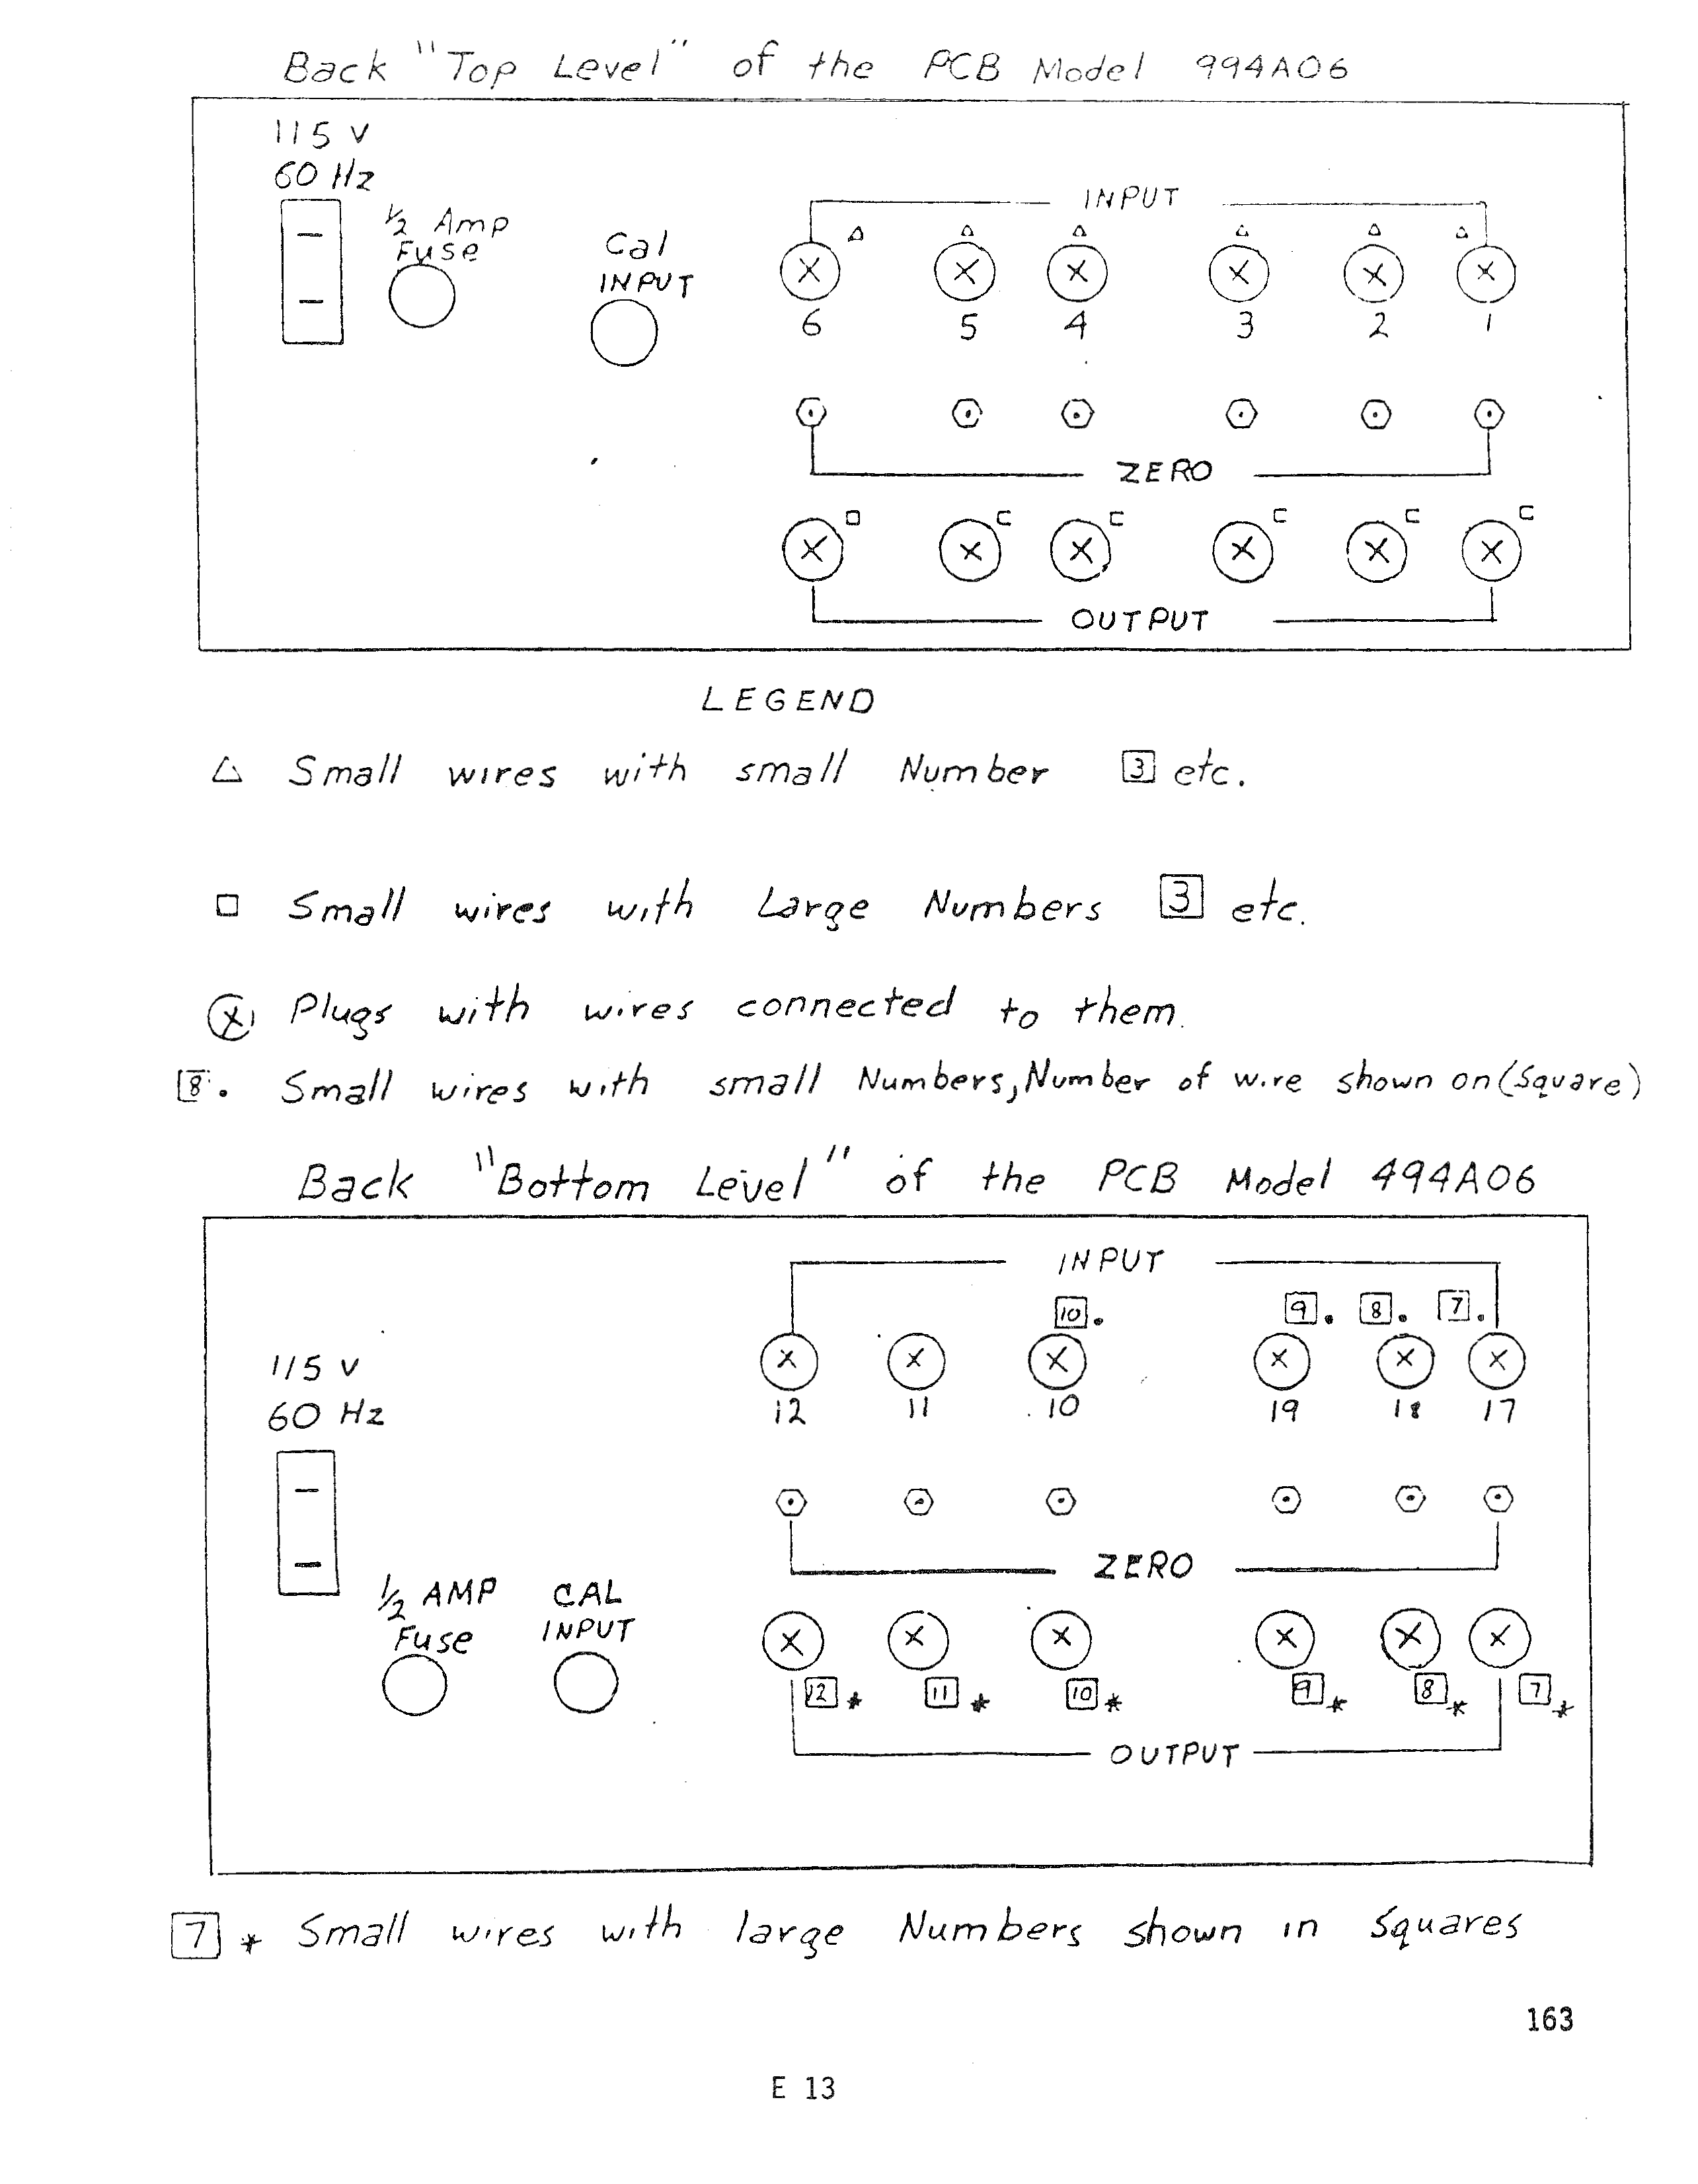 Back "Top Level" of the PCB Model 994A06
115 V
60 Hz
INPUT
1/2 Amp
Fuse
Cal
INPUT
6 5 4 3 2 1
ZERO
OUTPUT
LEGEND
△ Small wires with small Number 3 etc.
□ Small wires with Large Numbers 3 etc.
Ⓧ Plugs with wires connected to them.
8. Small wires with small Numbers, Number of wire shown on (Square)
Back "Bottom Level" of the PCB Model 494A06
INPUT
10. 9. 8. 7.
115 V
60 Hz
12 11 10 19 18 17
ZERO
1/2 AMP
Fuse
CAL
INPUT
12* 11* 10* 9* 8* 7*
OUTPUT
7* Small wires with large Numbers shown in Squares
163
E 13